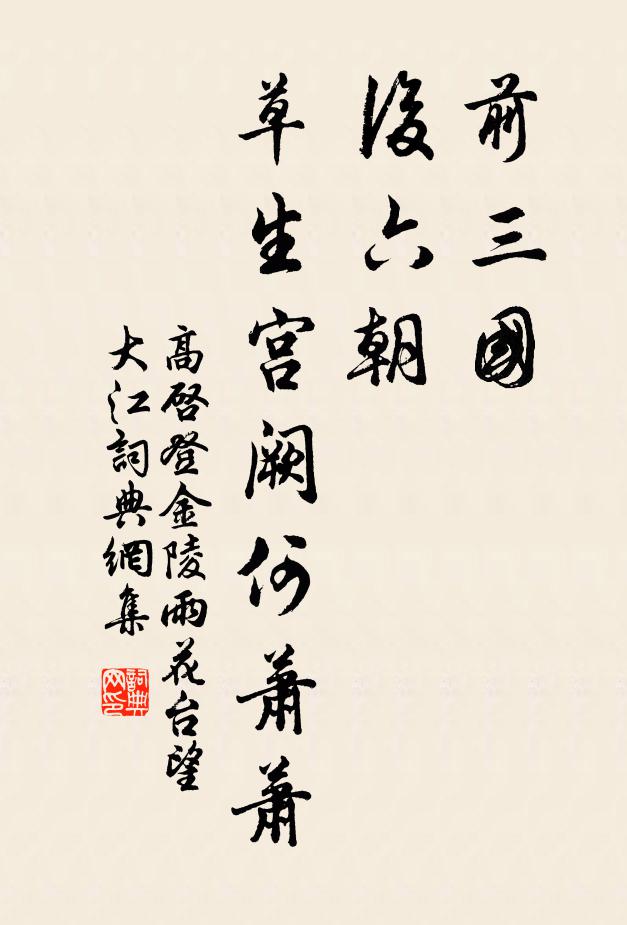 前三國
後六朝
草生宫闕何蕭蕭
高啓登金陵雨花台望
大江詞典網集
詞典網印